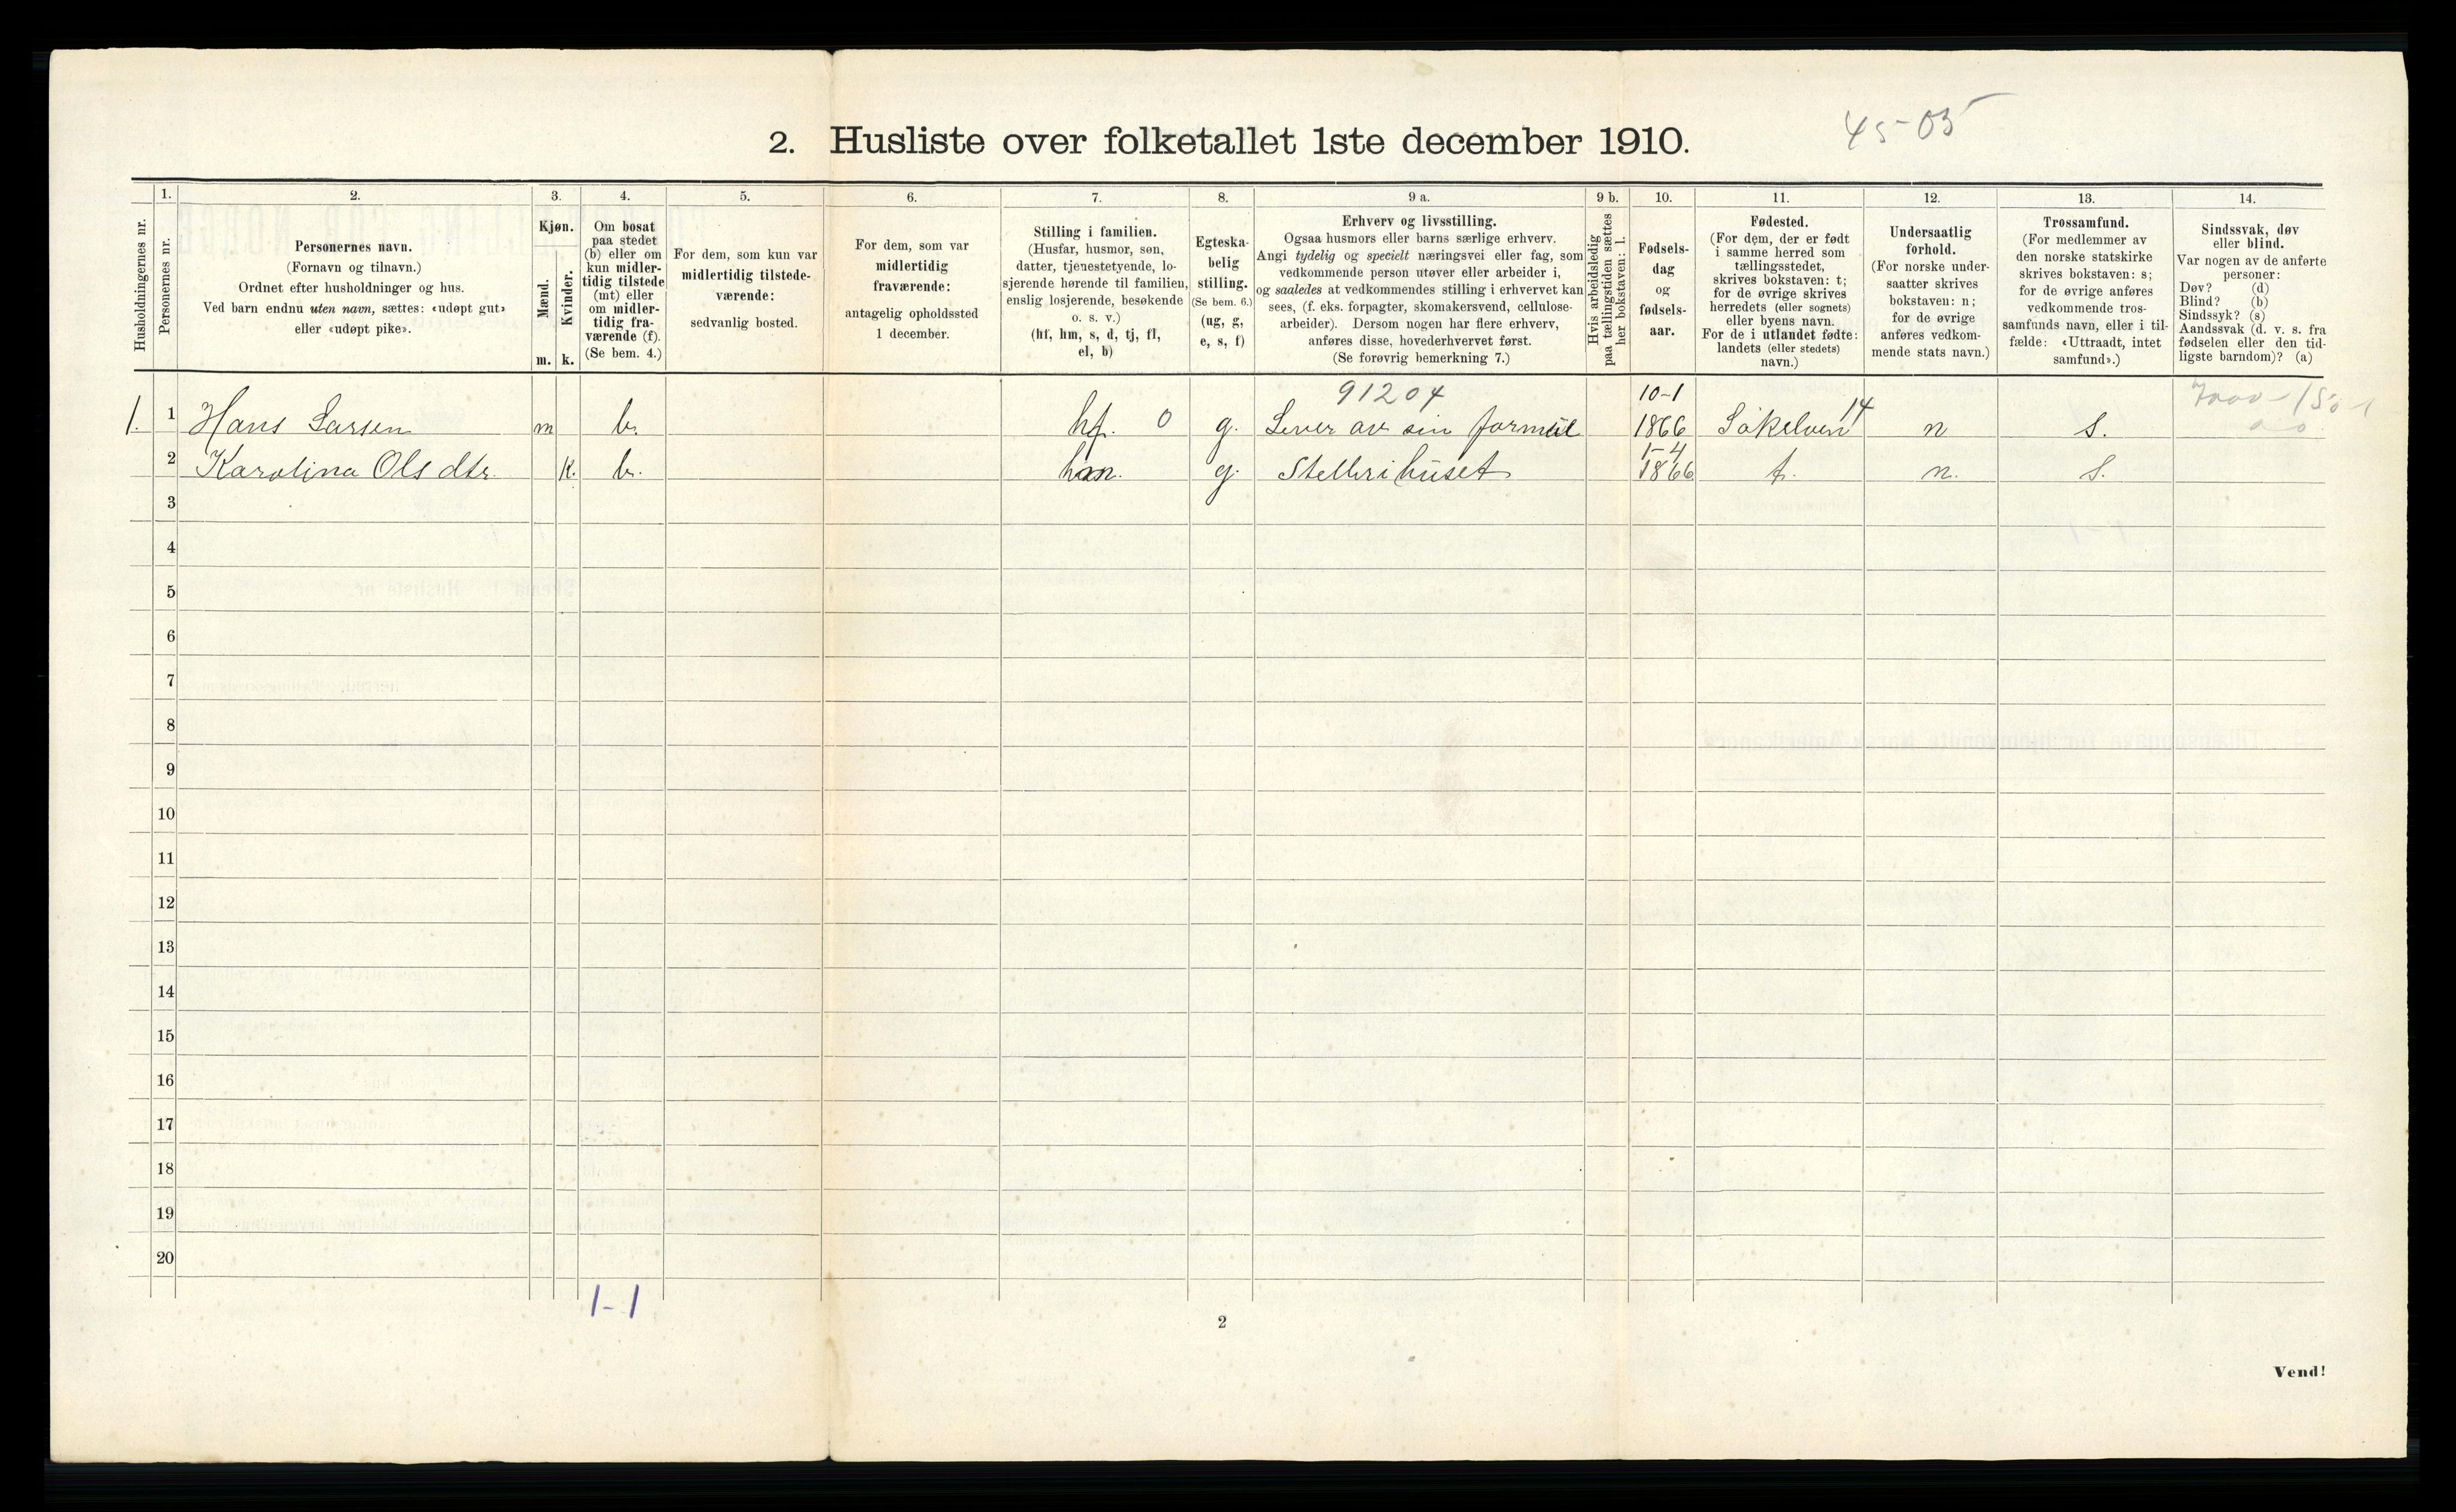 45-05
2. Husliste over folketallet 1ste december 1910.
Husholdningernes nr.
1.
Personernes nr.
2.
Personernes navn.
(Fornavn og tilnavn.)
Ordnet efter husholdninger og hus.
Ved barn endnu uten navn, sættes: «udøpt gut»
eller «udøpt pike».
3.
Kjøn.
Mænd.
Kvinder.
m. k.
4.
Om bosat
paa stedet
(b) eller om
kun midler-
tidig tilstede
(mt) eller
om midler-
tidig fra-
værende (f).
(Se bem. 4.)
5.
For dem, som kun var
midlertidig tilstede-
værende:
sedvanlig bosted.
6.
For dem, som var
midlertidig
fraværende:
antagelig opholdssted
1 december.
7.
Stilling i familien.
(Husfar, husmor, søn,
datter, tjenestetyende, lo-
sjerende hørende til familien,
enslig losjerende, besøkende
o. s. v.)
(hf, hm, s, d, tj, fl,
el, b)
8.
Egteska-
belig
stilling.
(Se bem. 6.)
(ug, g,
e, s, f)
9 a.
Erhverv og livsstilling.
Ogsaa husmors eller barns særlige erhverv.
Angi tydelig og specielt næringsvei eller fag, som
vedkommende person utøver eller arbeider i,
og saaledes at vedkommendes stilling i erhvervet kan
sees, (f. eks. forpagter, skomakersvend, cellulose-
arbeider). Dersom nogen har flere erhverv,
anføres disse, hovederhvervet først.
(Se forøvrig bemerkning 7.)
9 b.
Hvis arbeidsledig
paa tællingstiden sættes
her bokstaven: l.
10.
Fødsels-
dag
og
fødsels-
aar.
11.
Fødested.
(For dem, der er født
i samme herred som
tællingsstedet,
skrives bokstaven: t;
for de øvrige skrives
herredets (eller sognets)
eller byens navn.
For de i utlandet fødte:
landets (eller stedets)
navn.)
12.
Undersaatlig
forhold.
(For norske under-
saatter skrives
bokstaven: n;
for de øvrige
anføres vedkom-
mende stats navn.)
13.
Trossamfund.
(For medlemmer av
den norske statskirke
skrives bokstaven: s;
for de øvrige anføres
vedkommende tros-
samfunds navn, eller i til-
fælde: «Uttraadt, intet
samfund».)
14.
Sindssvak, døv
eller blind.
Var nogen av de anførte
personer:
Døv? (d)
Blind? (b)
Sindssyk? (s)
Aandssvak (d. v. s. fra
fødselen eller den tid-
ligste barndom)? (a)
91204 10-1 14
1. 1 Hans Larsen m b. hf. 0 g. Lever av sin formue 1866 Søkelven n s.
1-4
2 Karolina Olsdtr. k. b. hm. g. Stelleri huset 1866 t. n. s.
3
4
5
6
7
8
9
10
11
12
13
14
15
16
17
18
19
20
1-1
2
Vend!